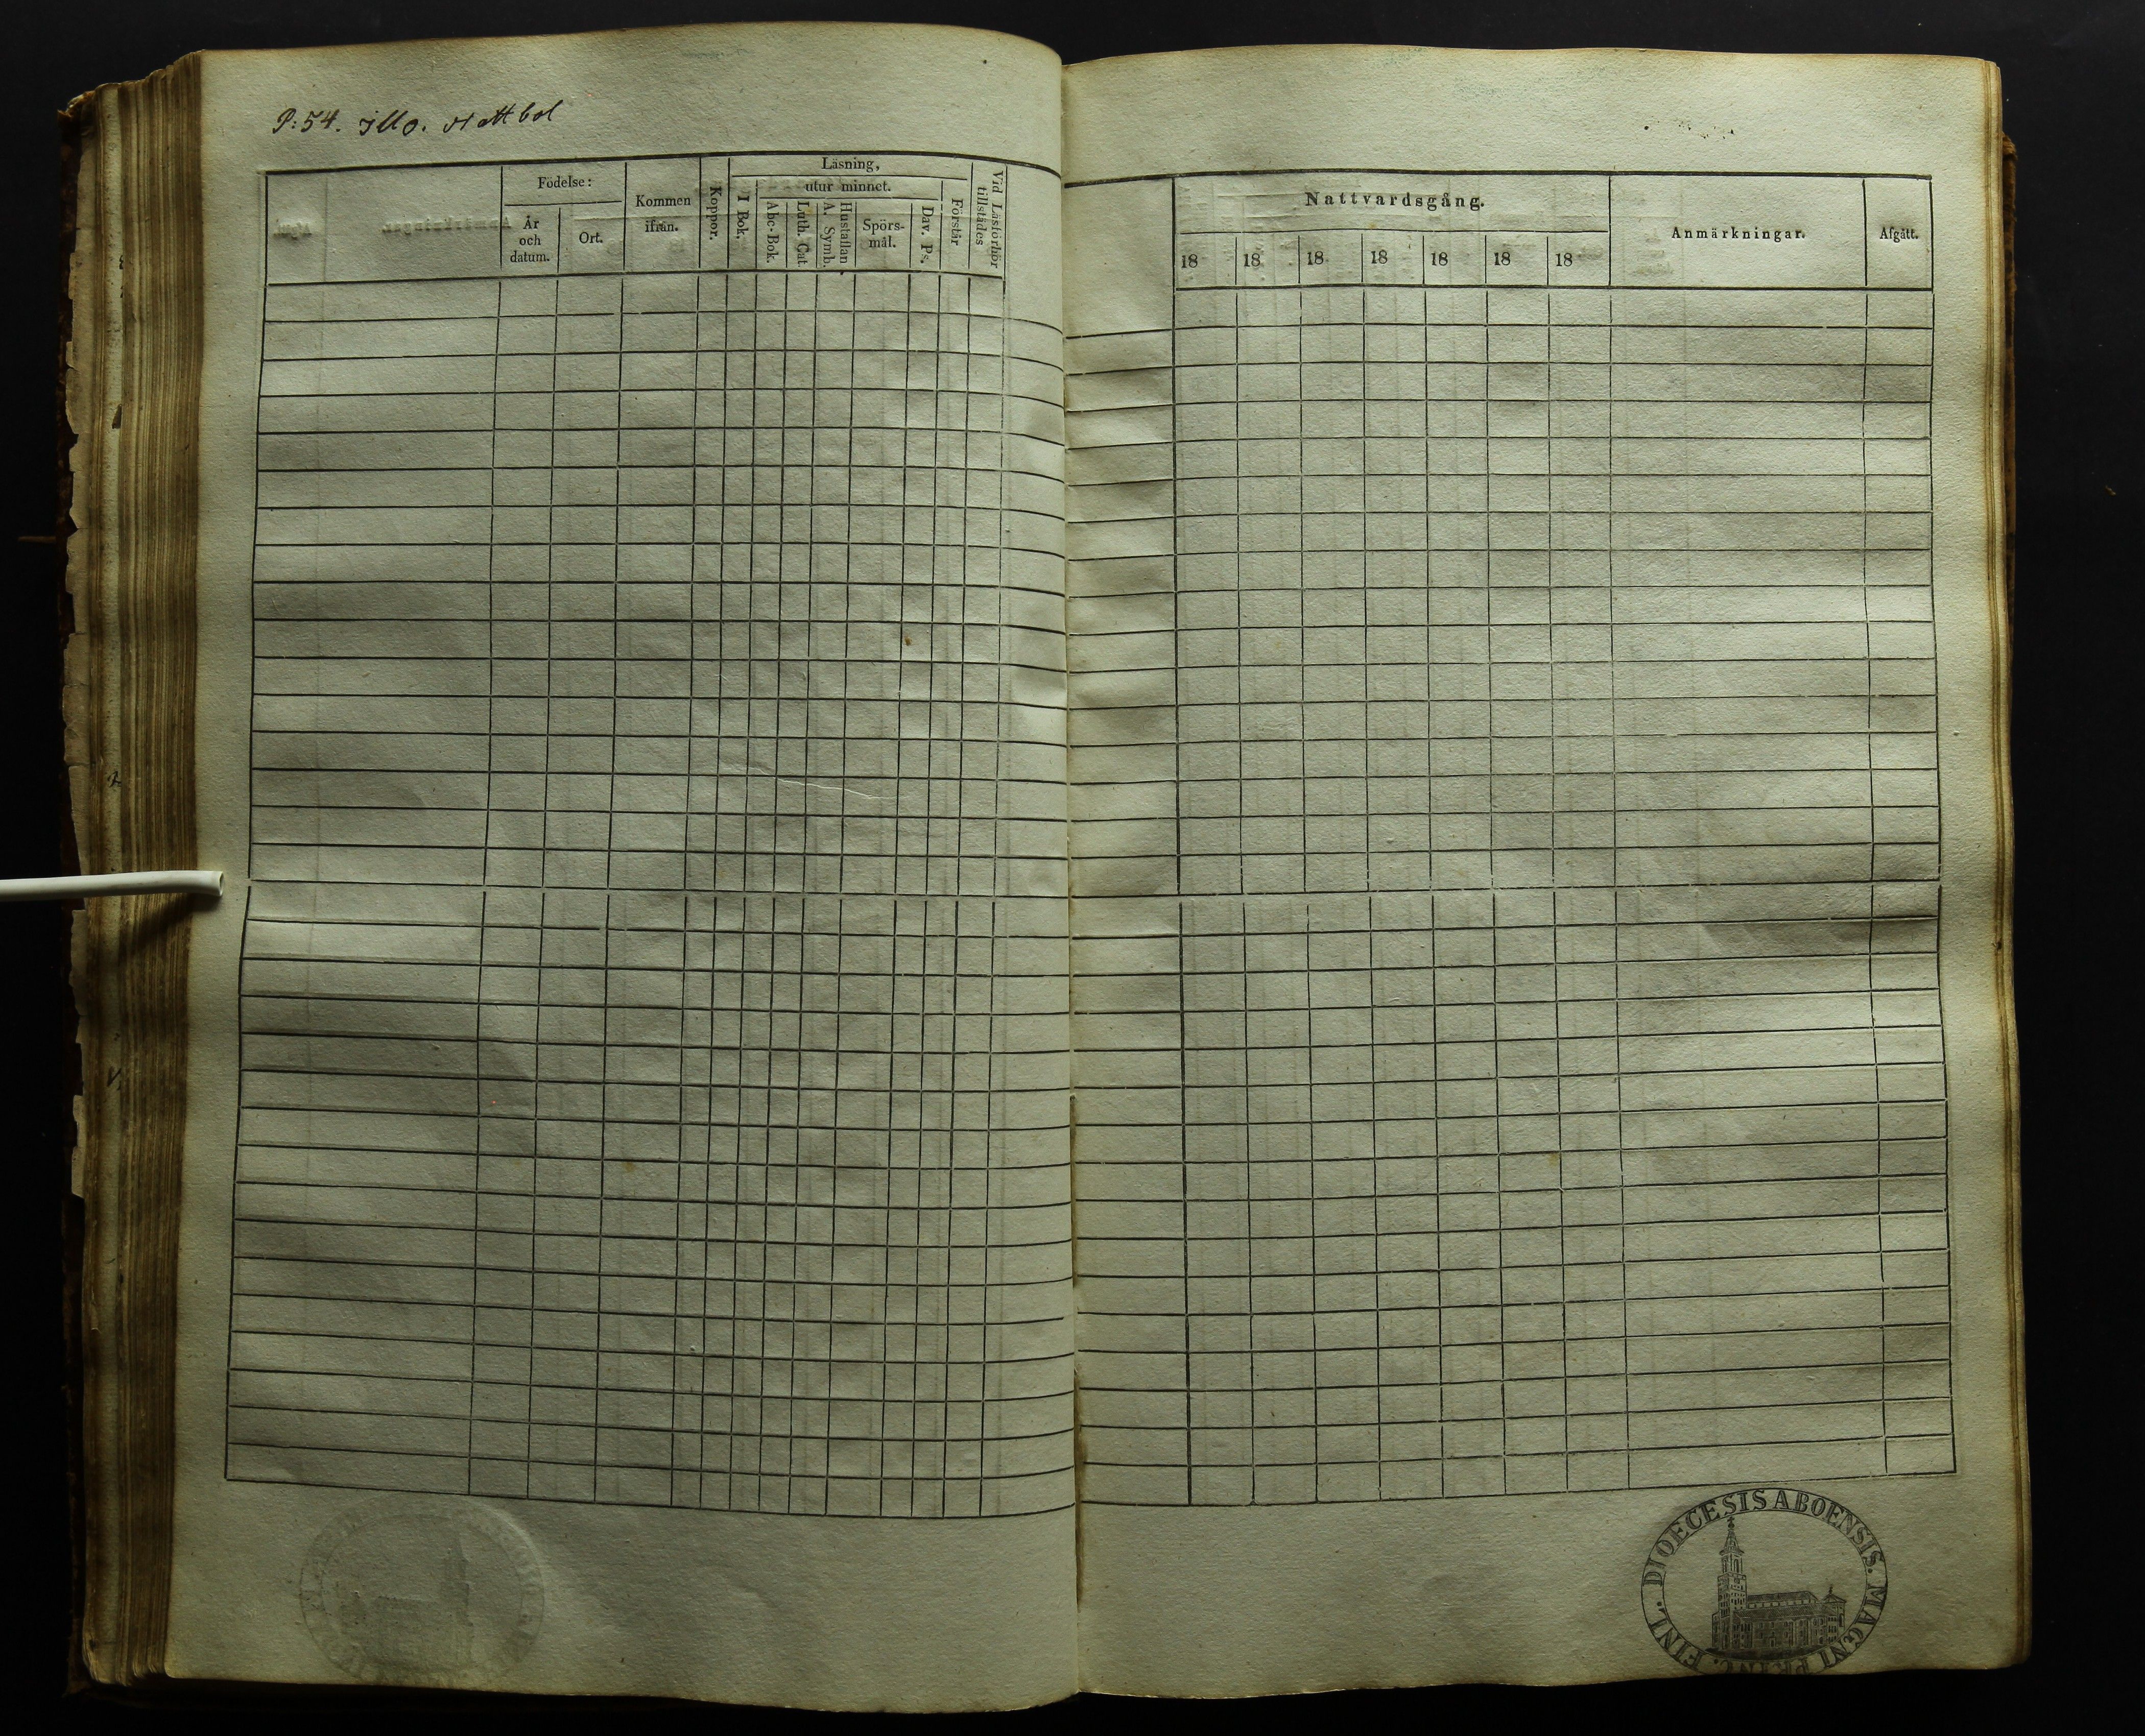 P: 54. Illo. Nattbol
Födelse:
År
och
datum.
Ort.
Kommen
ifrån.
Koppor.
Läsning,
I Bok.
utur minnet.
Abc-Bok.
Luth. Cat.
A. Symb.
Hustaflan
Spörs-
mål.
Dav. Ps.
Förstår
Vid Läsförhör
tillstädes
Nattvardsgång.
18 18 18 18 18 18 18
Anmärkningar.
Afgått.
DIOECESIS ABOENSIS. MAGNI PRINC. FINL.